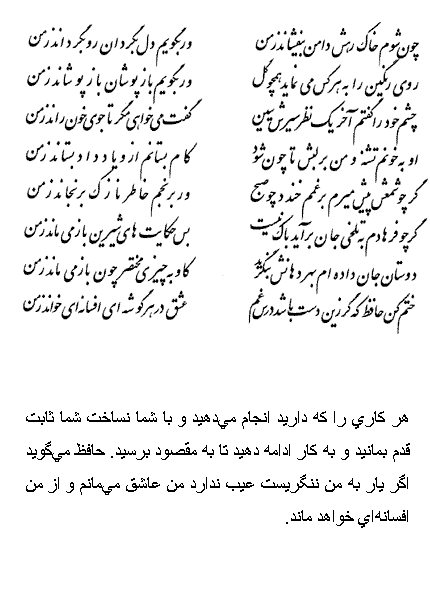 چون شوم خاک رهش دامن بیفشاند ز من ور بگویم دل بگردان رو بگرداند ز من
روی رنگین را به هر کس می نماید همچو گل ور بگویم باز پوشان باز پوشاند ز من
چشم خود را گفتم آخر یک نظر سیرش ببین گفت می‌خواهی مگر تا جوی خون راند ز من
او به خونم تشنه و من بر لبش تا چون شود کام بستانم از او یا داد بستاند ز من
گر چو شمعش پیش میرم بر غمم خندد چو صبح ور برنجم خاطر نازک برنجاند ز من
گر چو فرهادم به تلخی جان برآید باک نیست بس حکایت های شیرین باز می ماند ز من
دوستان جان داده ام بهر دهانش بنگرید کاو به چیزی مختصر چون باز می ماند ز من
ختم کن حافظ که گر زین دست باشد درس غم عشق در هر گوشه ای افسانه ای خواند ز من
هر کاري را که داريد انجام مي‌دهيد و با شما نساخت شما ثابت
قدم بمانيد و به کار ادامه دهيد تا به مقصود برسيد. حافظ مي‌گويد
اگر يار به من ننگريست عيب ندارد من عاشق مي‌مانم و از من
افسانه‌اي خواهد ماند.